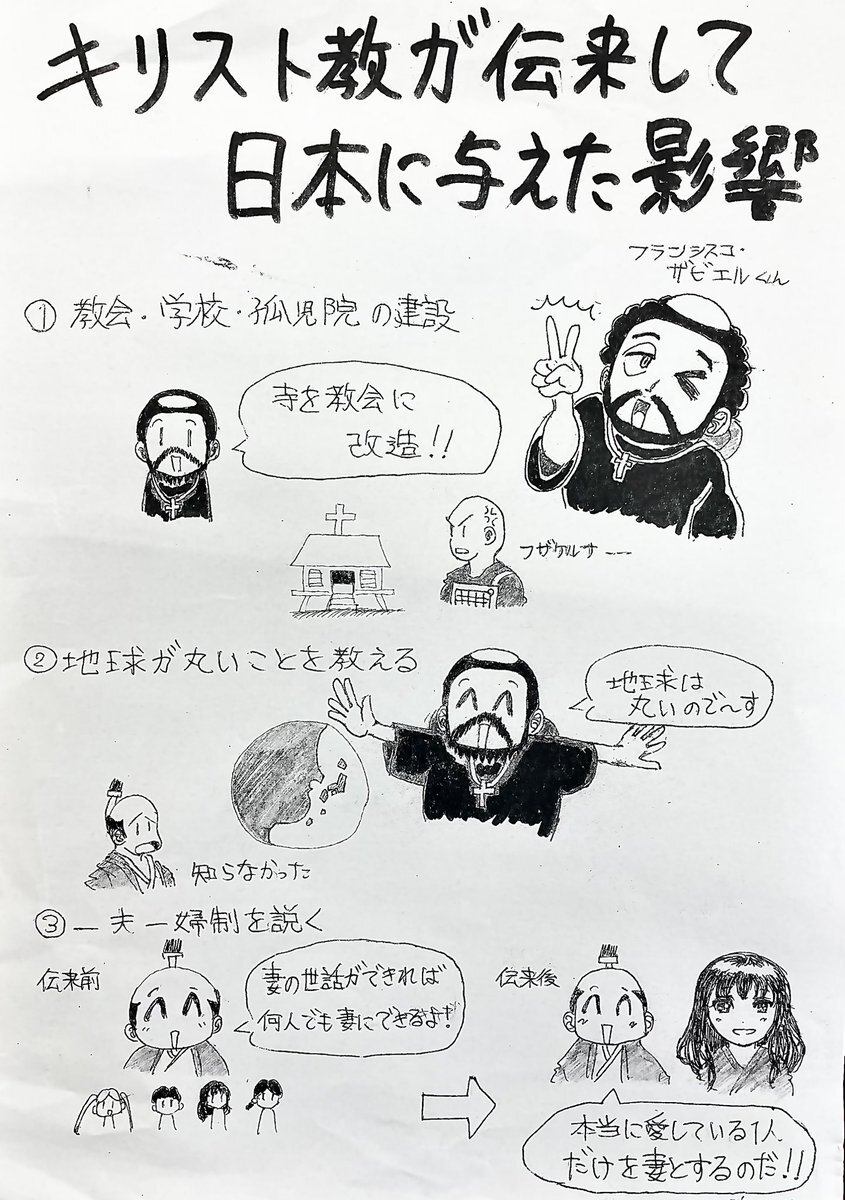 キリスト教が伝来して
日本に与えた影響
フランシスコ・
ザビエルくん
① 教会・学校・孤児院の建設
寺を教会に
改造!!
フザケルナ――
② 地球が丸いことを教える
地球は
丸いので〜す
知らなかった
③ 一夫一婦制を説く
伝来前
妻の世話ができれば
何人でも妻にできるよ!
伝来後
本当に愛している1人
だけを妻とするのだ!!